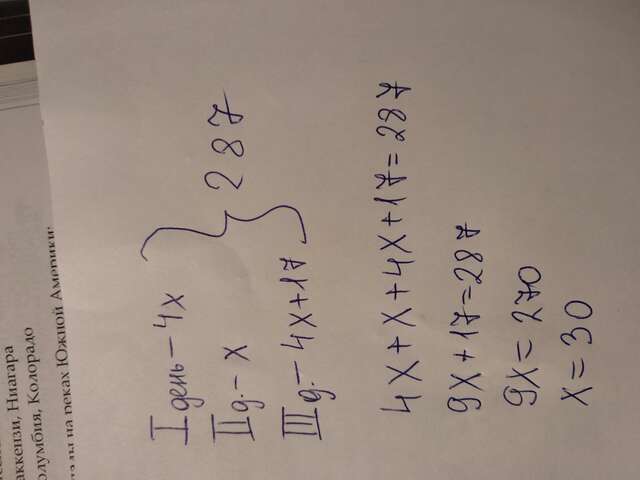 аккензи, Ниагара
олумбия, Колорадо
на реках Южной Америки:
I день - 4x
II д. - x
III д. - 4x+17
} 287
4x+x+4x+17=287
9x+17=287
9x=270
x=30